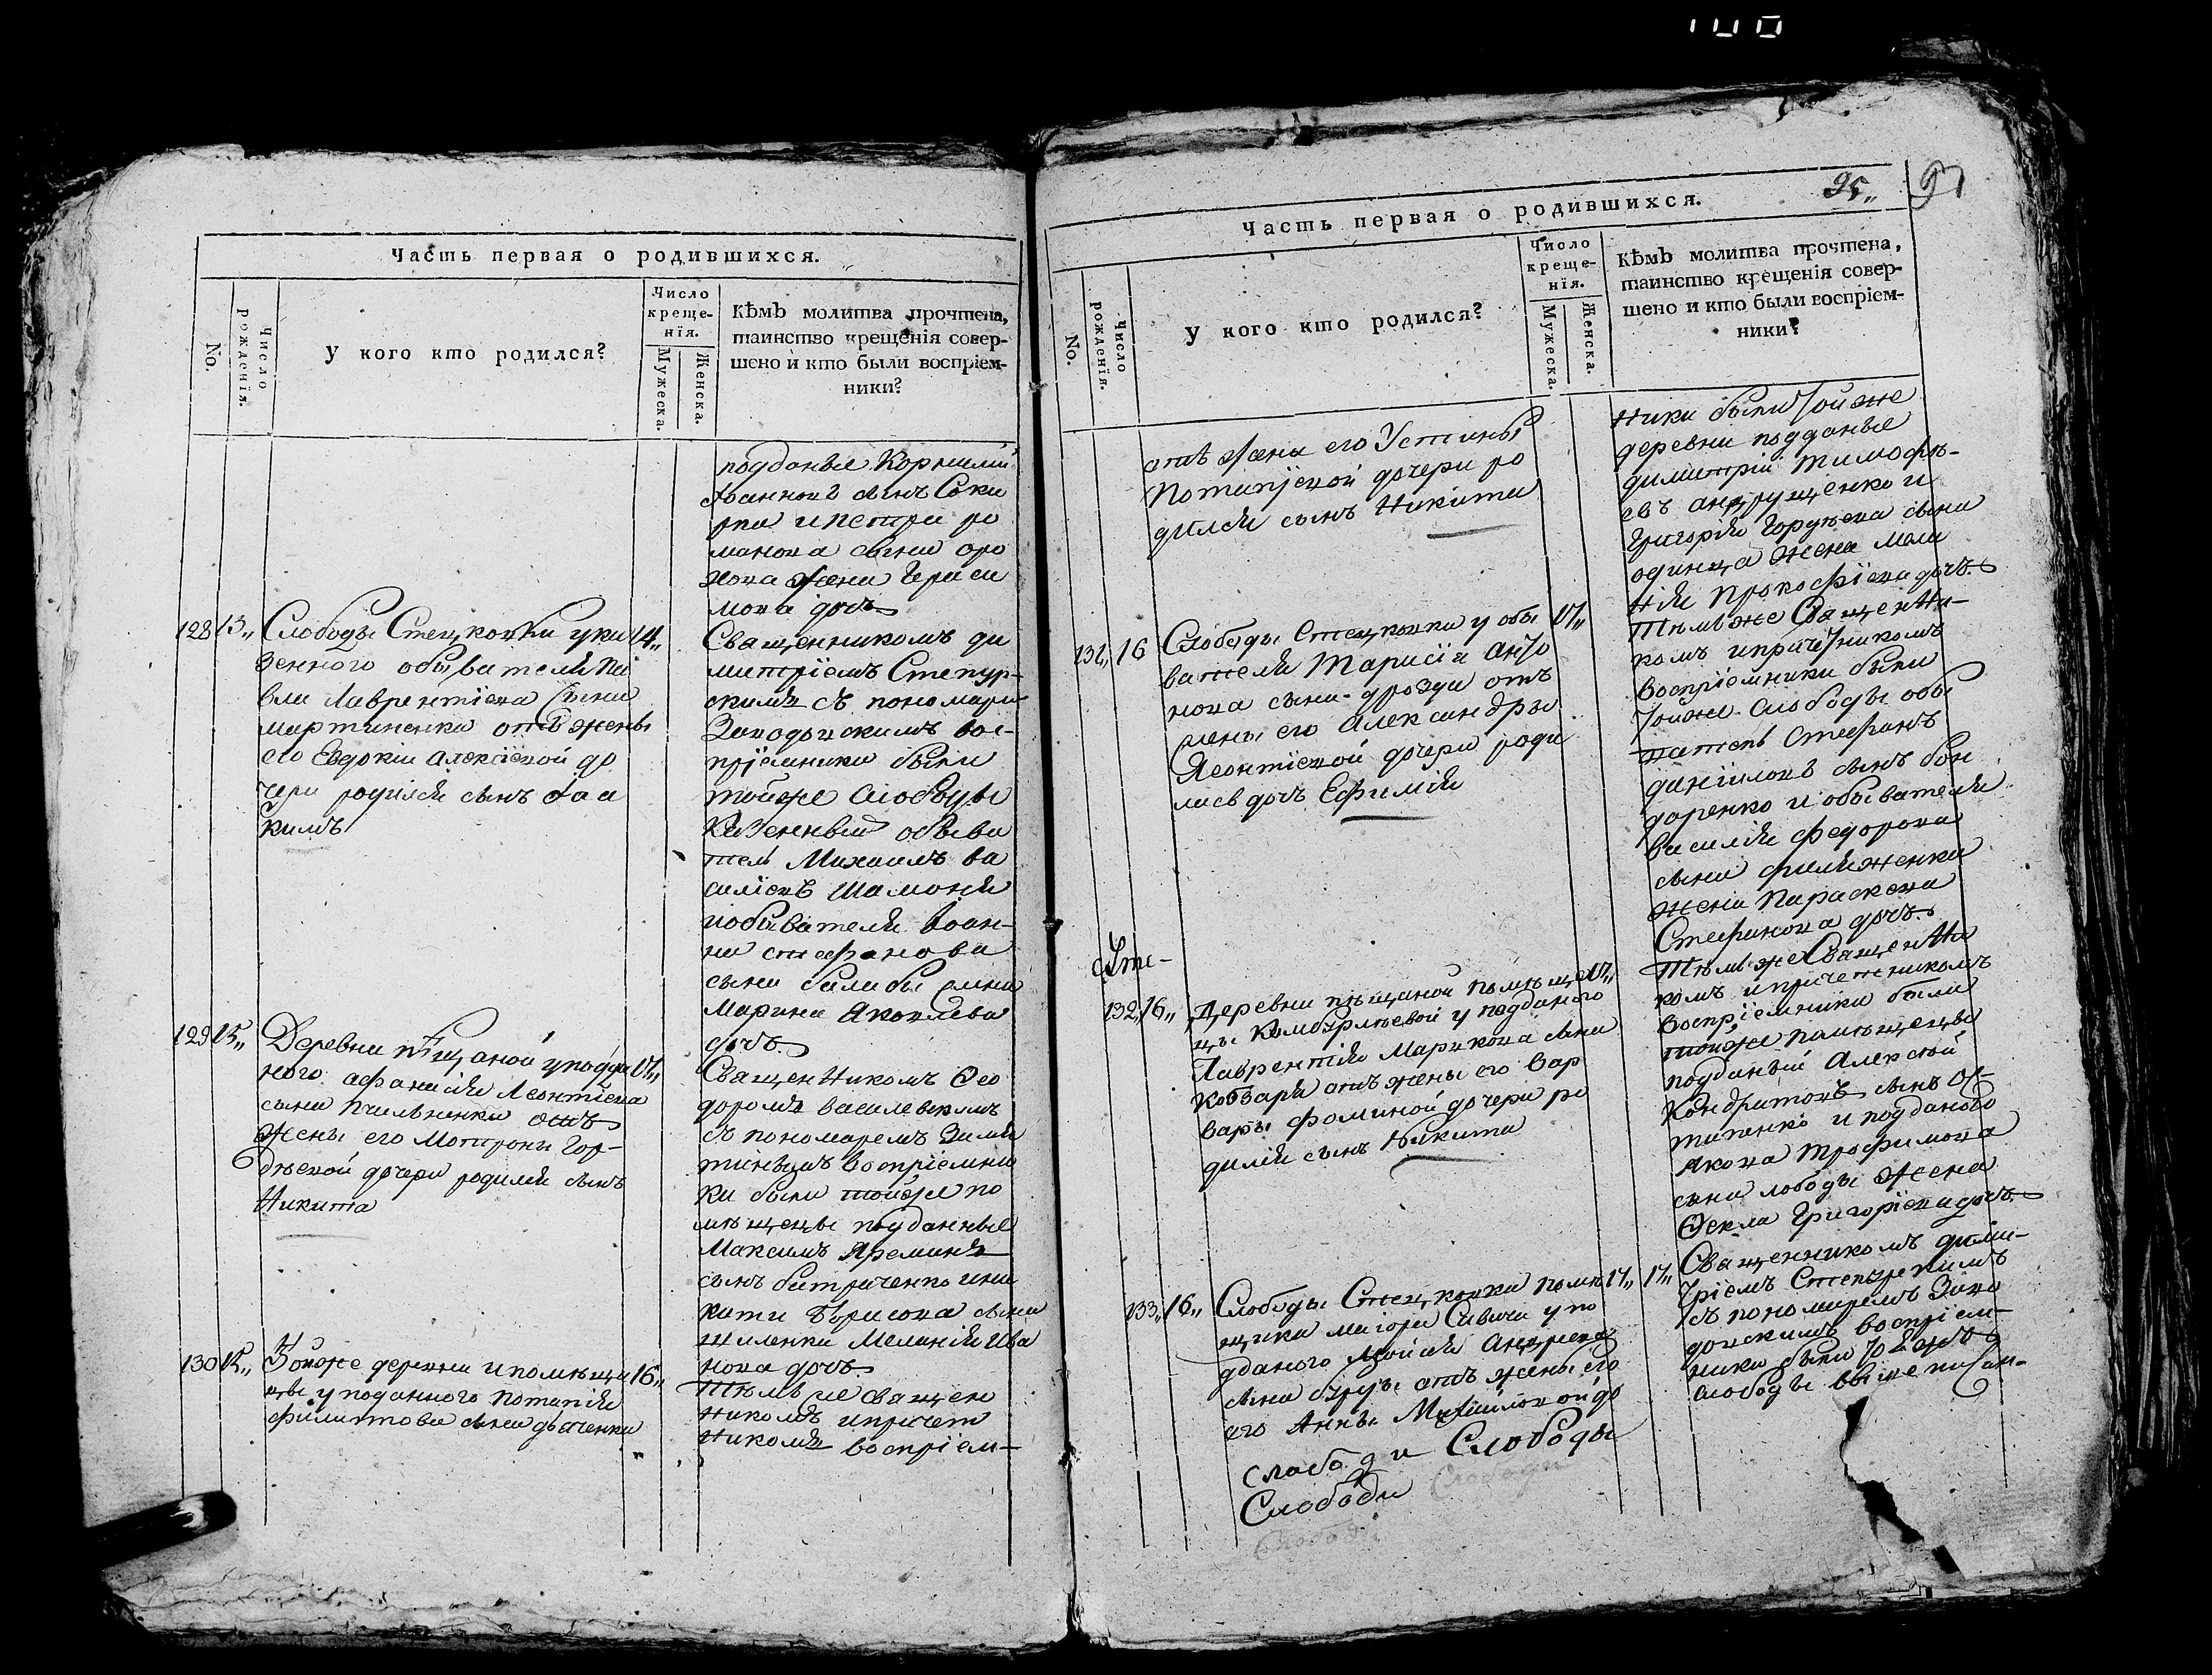 Часть первая о родившихся.
No.
Число рожденїя.
У кого кто родился?
Число
креще-
нїя.
Мужеска.
Женска.
Кѣмъ молитва прочтена,
таинство крещенїя совер-
шено и кто были воспрїем-
ники?
подданые Корнилїй
Іоанновъ сынъ Соки
рка и петра ро
манова сына
жена Гераси
мова дочь
128 13„ Слободы Стецковки у ка 14„
зеннаго обывателя па
вла Лаврентїева сына
мартиненка отъ жены
его Евдокїи алексїевой до
чери родился сынъ Іоа
кимъ
Священникомъ ди
митрїемъ Степур-
скимъ съ пономаремъ
Заводовскимъ вос-
прїемники были
тойже слободы
Казенный обыва
тель Михаилъ ва
силїевъ шамоня
и обывателя Іоан-
на стефанова
сына балабы жена
Марина Яковлева
дочь.
129 15„ Деревни пѣщаной у подда 17„
ного афанасїя Леонтїева
сына отъ
жены его Мотроны Гор-
дѣевой дочери родился сынъ
Никита
Священникомъ Ѳео
доромъ василевскимъ
съ пономаремъ
воспрїемни
ки были тойже по
мѣщицы подданные
Максимъ Яреминъ
сынъ и ни
киты Борисова сына
жена Меланїя Ива
нова дочь.
130 15„ Тойже деревни и помѣщи 16„
цы у подданного потапїя
филиппова сына дьяченка
Тѣмъ же священ
никомъ и причет
никомъ воспрїем-
100
Часть первая о родившихся. 95„ 97
No.
Число рожденїя.
У кого кто родился?
Число
креще-
нїя.
Мужеска.
Женска.
Кѣмъ молитва прочтена,
таинство крещенїя совер-
шено и кто были воспрїем-
ники?
отъ жены его Устины
Потапїевой дочери ро
дился сынъ Никита
ники были тойже
деревни подданые
димитрїй тимофѣ-
евъ андрущенко и
Григорїя Гордѣева сына
одинца жена Мела
нїя прокофїева дочь.
131„ 16 Слободы Стецковки у обы 17„
вателя Тарасїя анто
нова сына дрозда отъ
жены его Александры
Леонтїевой дочери роди
лась дочь Ефимїя
Тѣмъ же Священни-
комъ и причетникомъ
воспрїемники были
тойже слободы обы
ватель Стефанъ
данїиловъ сынъ бон
даренко и обывателя
василїя федорова
сына филяженка
жена Параскева
Стефанова дочь.
132„ 16„ Деревни пѣщаной помѣщи 17„
цы Камбурлѣевой у подданого
Лаврентїя Маркова сына
Ковбари отъ жены его Вар
вары фоминой дочери ро
дился сынъ Никита
Тѣмъ же Священни
комъ и причетникомъ
воспрїемники были
тойже помѣщицы
подданый Алексѣй
Кондратовъ сынъ
и подданого
якова трофимова
сына лободы жена
Ѳекла Григорїева дочь.
133„ 16„ Слободы Стецковки помѣ 17„ 17„
щика маїора Савича у по
дданого Моисея Андреева
сына отъ жены его
его Анны Михаиловой до
Священникомъ дими-
трїемъ Степурскимъ
съ пономаремъ Заво
довскимъ воспрїем-
ники были тойже
слободы вышеписан-
слободи Слободы
Слободи Слободи
Слободи